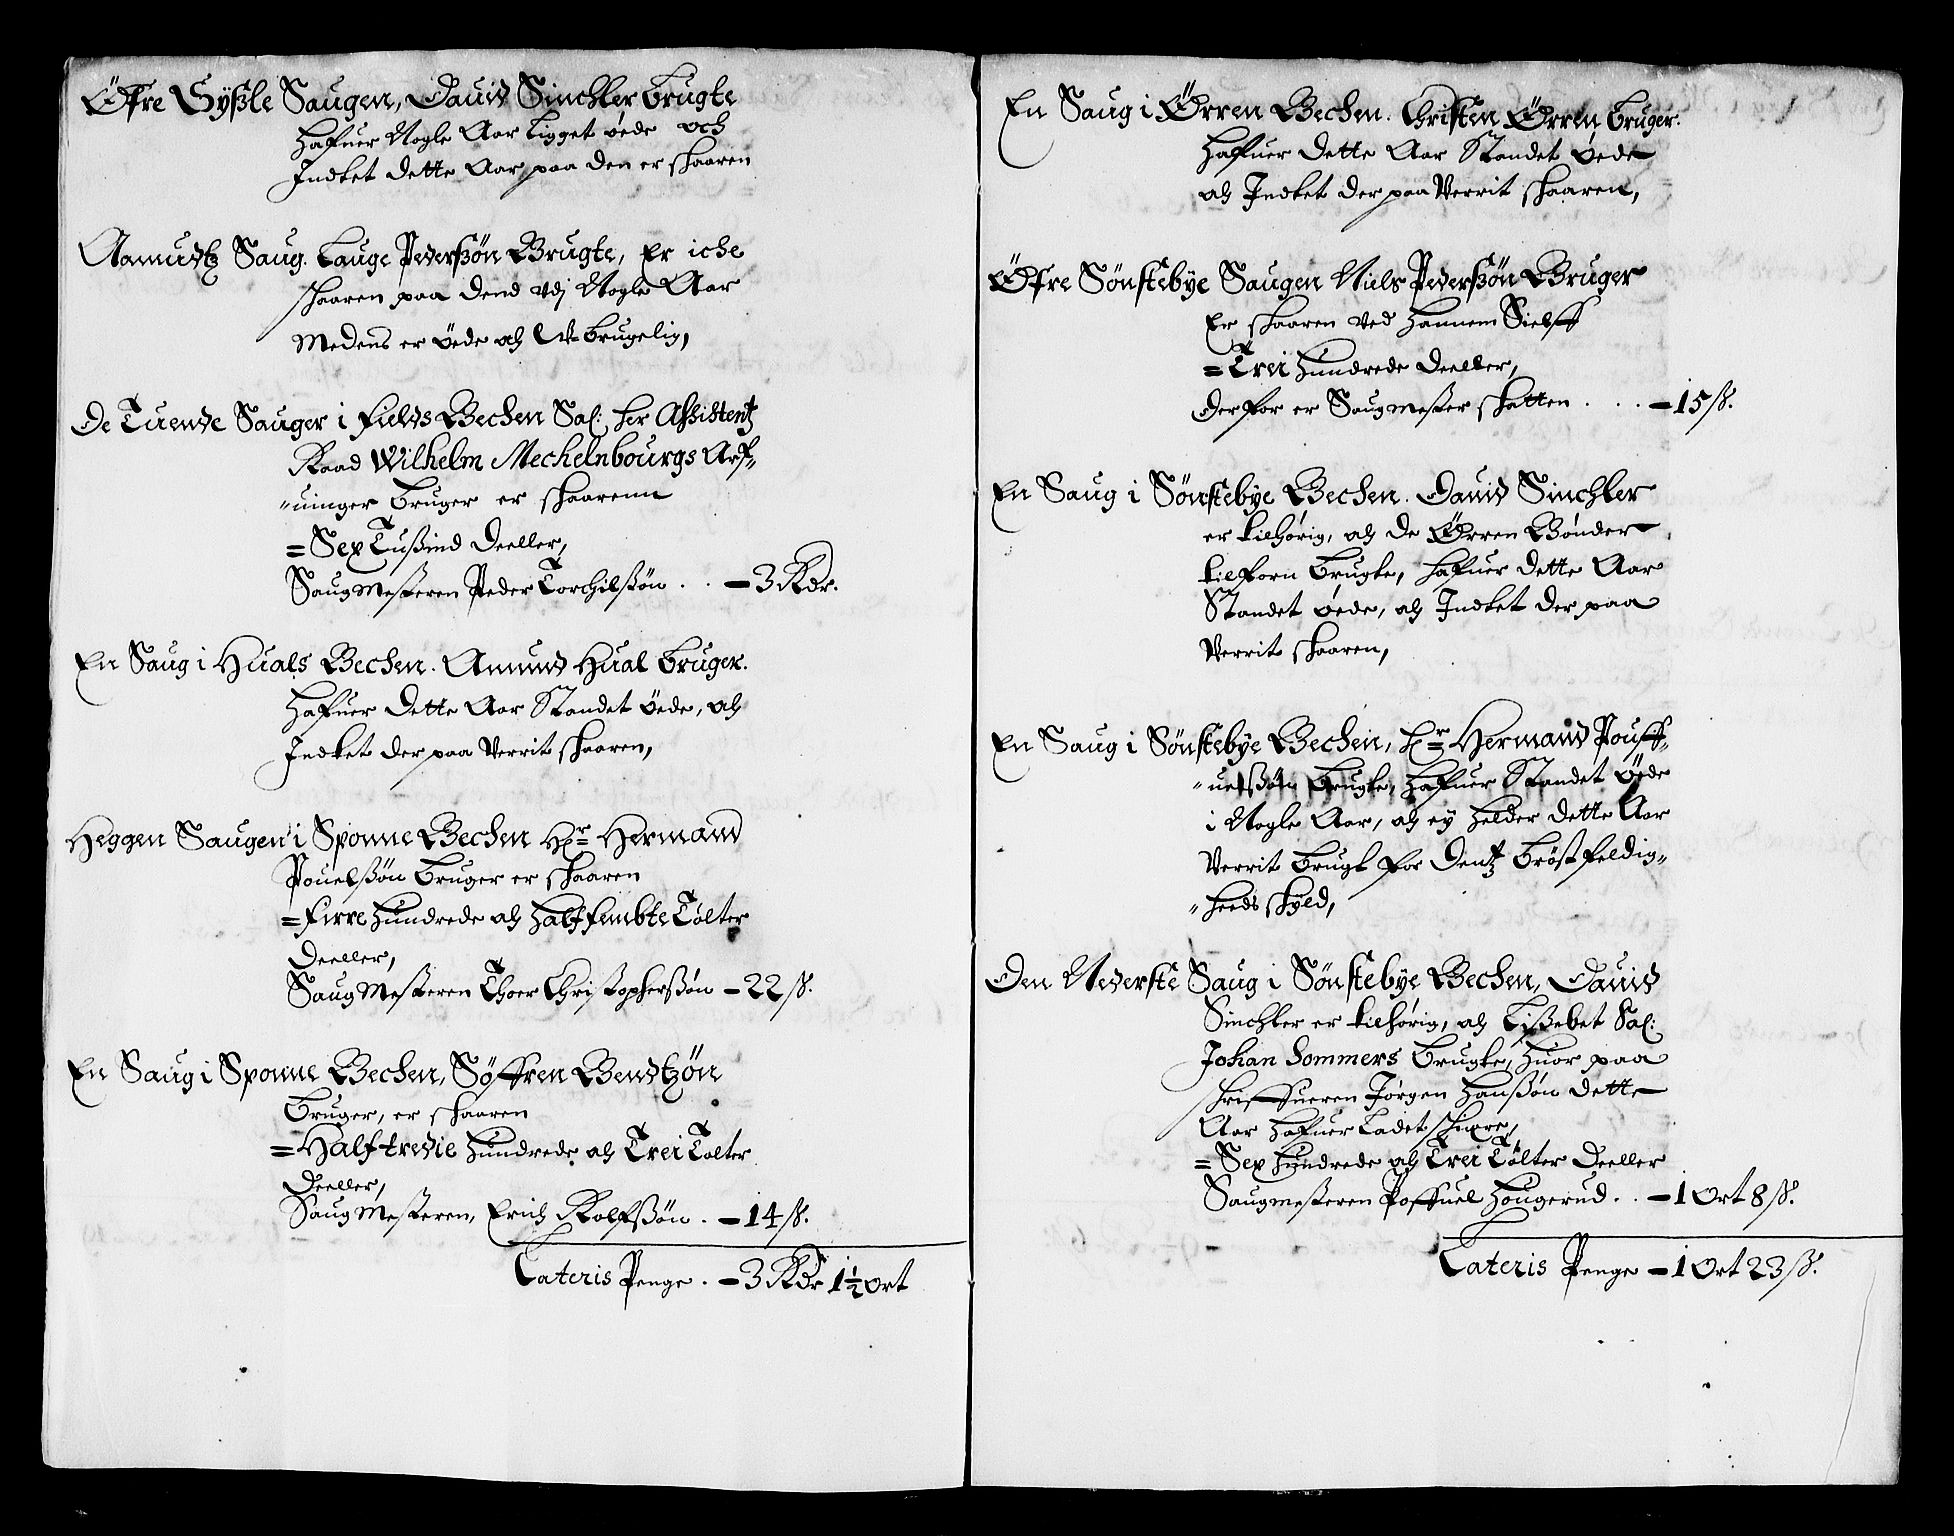 Öfre Gyßle Saugen, Dauid Sinchler brugte
Hafuer Nogle Aar ligget øede och
Indtet dette Aar paa den er skaaren
Aamudtz Saug. Lauge Pederßøn Brugte, Er iche
skaaren paa dend vdj Nogle Aar
Medens er øede och V-brugelig,
De Tuende Sauger i Fields Bechen Sal: her Assistentz
Raad Wilhelm Mechelnbourgs Arf-
-uinger bruger er skaarenn
=Sex Tußind Deeller,
Saug Mesteren Peder Torchilsøn . . – 3 Rdr.
En Saug i Huals Bechen. Amund Hual bruger.
Hafuer dette Aar Standet øede, och
Indtet der paa Verrit skaaren,
Heggen Saugen i Sponne Bechen Hr Hermand
Pouelsøn bruger er skaaren
=Firre Hundrede och Halffembte Tolter
Deeller,
Saug Mesteren Thoer Christophersøn – 22 ß.
En Saug i Sponne Bechen, Söffren Bendtzön
bruger, er skaaren
=Halftredie Hundrede och Trei Tolter
Deeller,
Saug Mesteren, Erich Rolfsøn . – 14 ß.
Lateris Penge . – 3 Rdr 1½ Ort
En Saug i Örren Bechen. Christen Örren bruger.
Haffuer dette Aar Standet øede
och Indtet der paa Verrit skaaren,
Öfre Sönstebye Saugen Niels Pederßøn Bruger
Er skaaren ved hannem Sielff
=Trei Hundrede Deeller,
Derfor er Saugmester skatten . . . – 15 ß.
En Saug i Sönstebye Bechen. Dauid Sinchler
er tilhørig, och de Örren Bønder
tilforn brugte, hafuer dette Aar
Standet øede, och Indtet der paa
Verrit skaaren,
En Saug i Sönstebye Bechen, Hr Hermand Pouff-
-uelsøn brugte, Hafuer Standet øede
i Nogle Aar, och ey Helder dette Aar
Verrit brugt for dentz brøstfeldig-
-heeds skyld,
Den Nederste Saug i Sönstebye Bechen, Dauid
Sinchler er tilhørig, och Lißebet Sal:
Johan Sommers brugte, Huor paa
skriffueren Jørgen Hansøn dette
Aar Hafuer Ladet skiære,
=Sex Hundrede och Trei Tölter Deeller
Saugmesteren Poffuel Hougerud . . – 1 Ort 8 ß.
Lateris Penge – 1 Ort 23 ß.